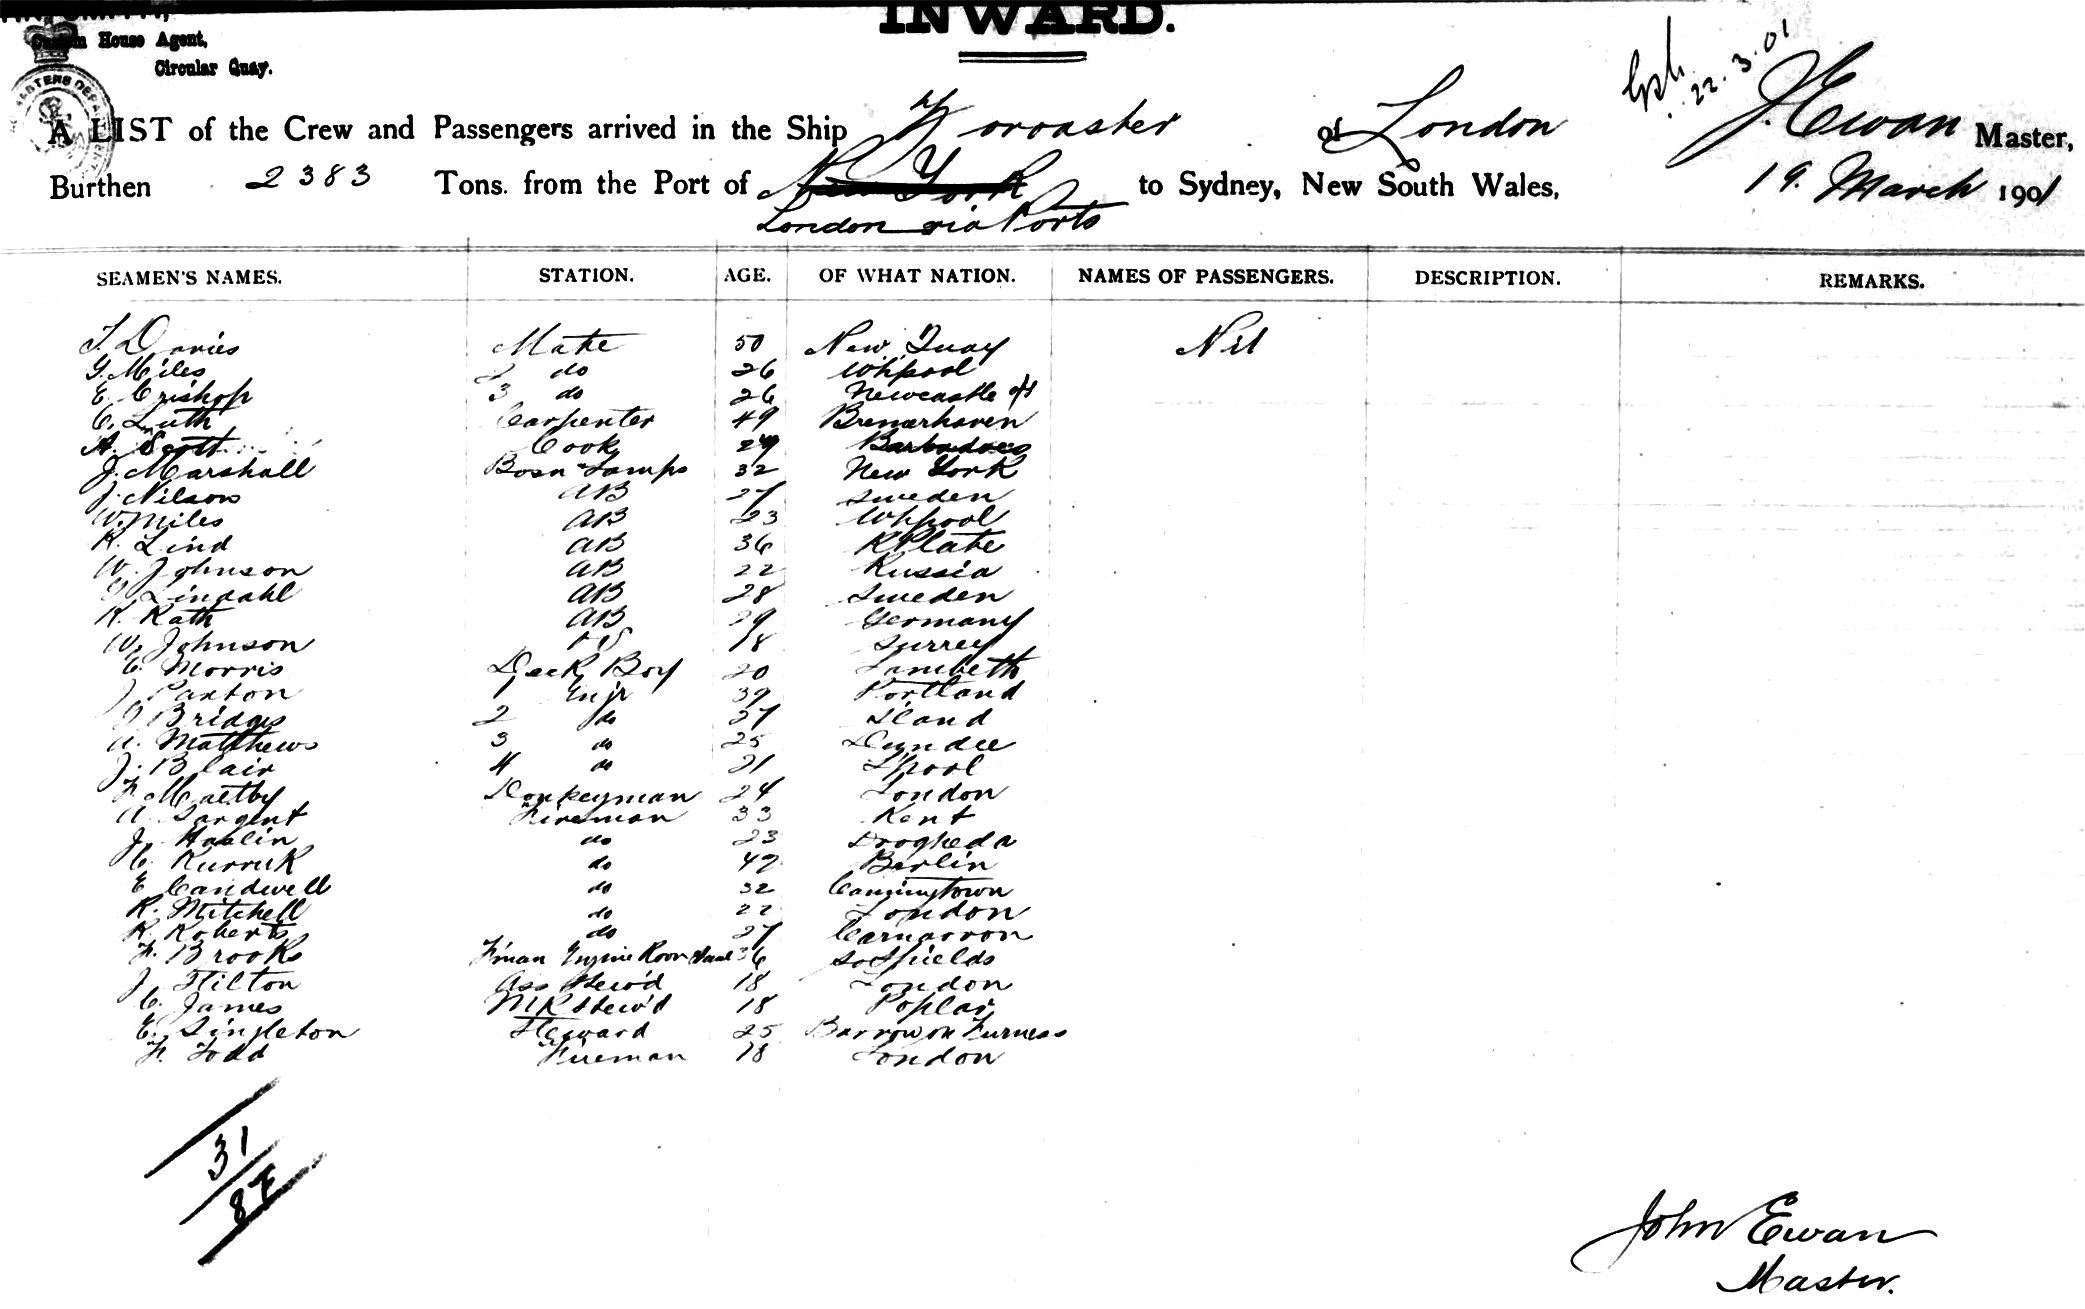 INWARD.
Custom House Agent,
Circular Quay.
22.3.01
A LIST of the Crew and Passengers arrived in the Ship Yoroaster of London J. Ewan Master,
Burthen 2383 Tons. from the Port of New York to Sydney, New South Wales, 19. March 1901
London via Ports
SEAMEN'S NAMES. STATION. AGE. OF WHAT NATION. NAMES OF PASSENGERS. DESCRIPTION. REMARKS.
T. Davies Mate 50 New Quay Nil
G. Miles 2 do 26 Whpool
E. Crishop 3 do 26 Newcastle
C. Luth Carpenter 49 Bremerhaven
A. Scott Cook Barbadoes
J. Marshall Bosn & Lamps 32 New York
J. Nilson AB 27 Sweden
W. Miles AB 23 Whpool
K. Lind AB 36 R Plate
W. Johnson AB 22 Russia
Lindahl AB 28 Sweden
K. Rath AB 29 Germany
W. Johnson OS 18 Surrey
C. Morris Deck Boy 20 Lambeth
J. Paxton 1 Engr 39 Portland
G Bridges 2 do 27 Iland
A. Matthews 3 do 25 Dundee
J. Blair 4 do 21 L'pool
F. Maltby Donkeyman 24 London
A. Sargent Fireman 33 Kent
J. Haslin do 23 Drogheda
C. Kurruk do 42 Berlin
E Candwell do 32 Canningtown
R. Mitchell do 22 London
R. Roberts do 27 Carnarvon
F. Brooks F'man Engine Room Stwd 36 So Shields
J. Hilton Ass Stew'd 18 London
C. James MR Stew'd 18 Poplar
E. Singleton Steward 25 Barrow on Furness
F. Todd Fireman 18 London
31
87
John Ewan
Master.